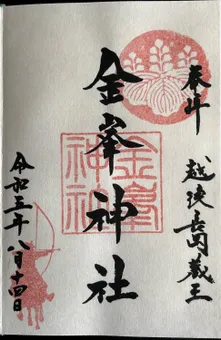 奉拝
越後長岡蔵王
金峯神社
金峯
神社
令和三年八月十四日